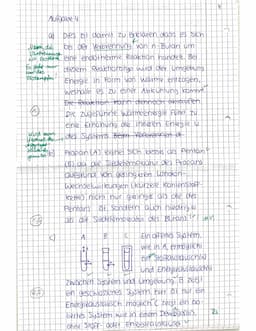 Aufgabe 4
a) Dies ist damit zu erklären dass es sich
bei der Verbrennung von n-Butan um
eine endotherme Reaktion handelt. Bei
diesem Reaktionstyp wird der Umgebung
Energie in Form von Wärme entzogen,
weshalb es zu einer Abkühlung kommt.
Die Reaktion kann dennoch
Die zugeführte Wärmeenergie führt zu
eine Erhöhung der inneren Energie U
des Systems
b) Propan (A) eignet sich besser als Pentan
(B) da die Siedetemperatur des Propans
aufgrund von geringeren London-
Wechselwirkungen (kürzere Kohlenstoff-
kette) nicht nur geringer als die des
Pentans ist sondern auch niedriger
als die Siedetemperatur des Butans
c) A B C
Ein offenes System,
wie in A, ermöglicht
ein Stoffaustausch
und Energieaustausch
zwischen System und Umgebung. B zeigt
ein geschlossenes System, hier ist nur ein
Energieaustausch möglich. C zeigt ein iso-
liertes System wie in einem
ohne Stoff- oder Energieaustausch